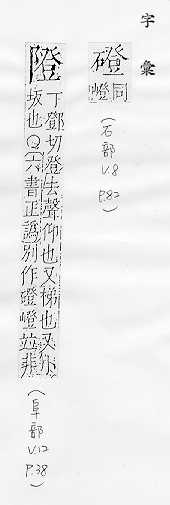 字彙
磴 同嶝
(石部 V.8 P.82)
隥 丁鄧切登去聲仰也又梯也又小
坂也〇六書正譌別作蹬嶝竝非
(阜部 V.12 P.38)